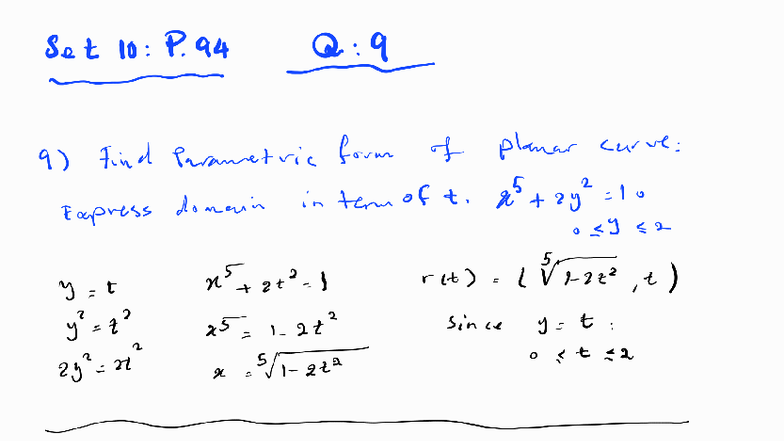 Set 10: P.94
Q: 9
9) Find Parametric form of planar curve:
Express domain in term of t. x⁵ + 2y² = 1.
0 ≤ y ≤ 2
y = t
y² = t²
2y² = 2t²
x⁵ + 2t² = 1
x⁵ = 1 - 2t²
x = ⁵√1 - 2t²
r(t) = (⁵√1-2t², t)
Since y = t :
0 ≤ t ≤ 2